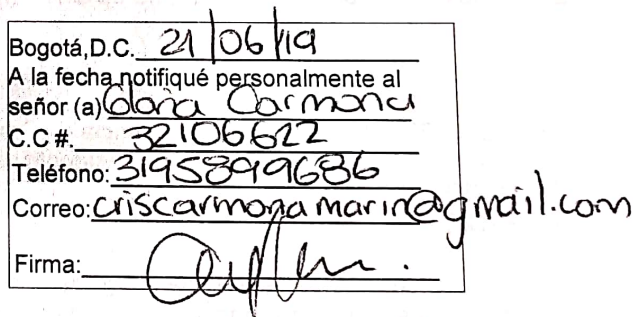 Bogotá,D.C. 21/06/19
A la fecha notifiqué personalmente al
señor (a) Gloria Carmona
C.C #. 32106622
Teléfono: 3195899686
Correo: criscarmonamarin@gmail.com
Firma: